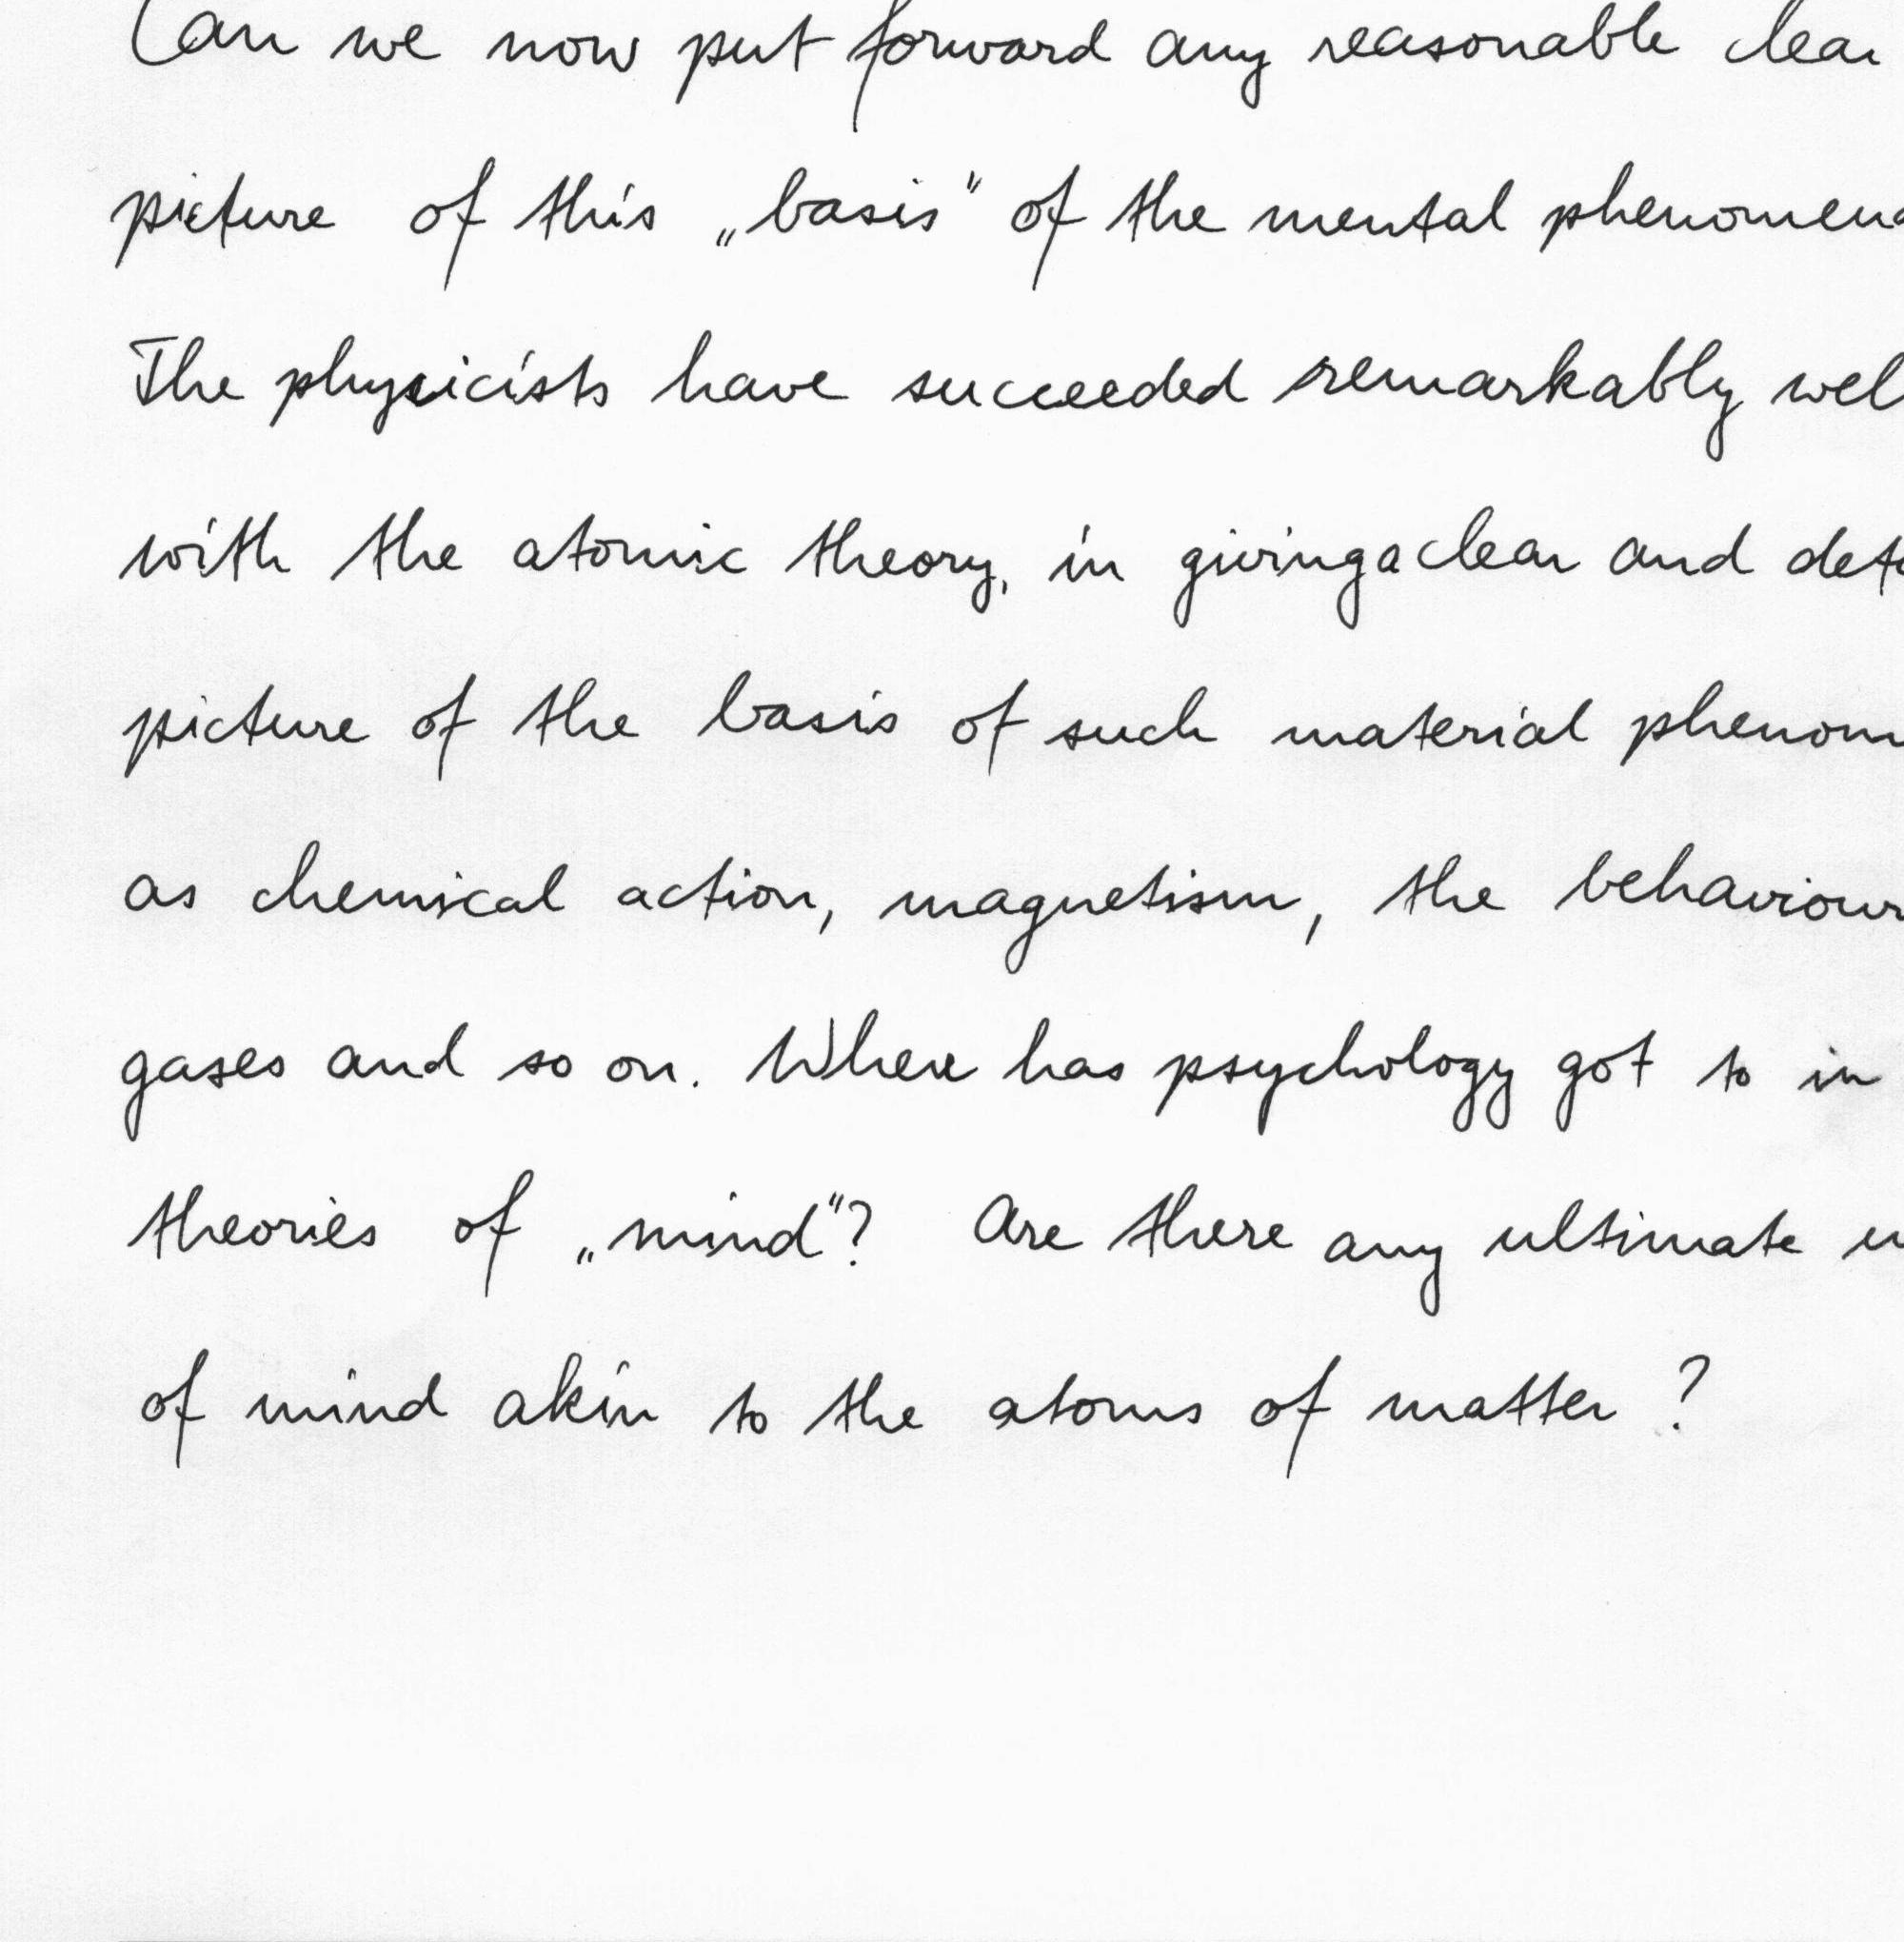 Can we now put forward any reasonable clear
picture of this „basis" of the mental phenomena
The physicists have succeeded remarkably well
with the atomic theory, in giving a clear and
picture of the basis of such material
as chemical action, magnetism, the behaviour
gases and so on. Where has psychology got to in
theories of „mind"? Are there any ultimate
of mind akin to the atoms of matter ?